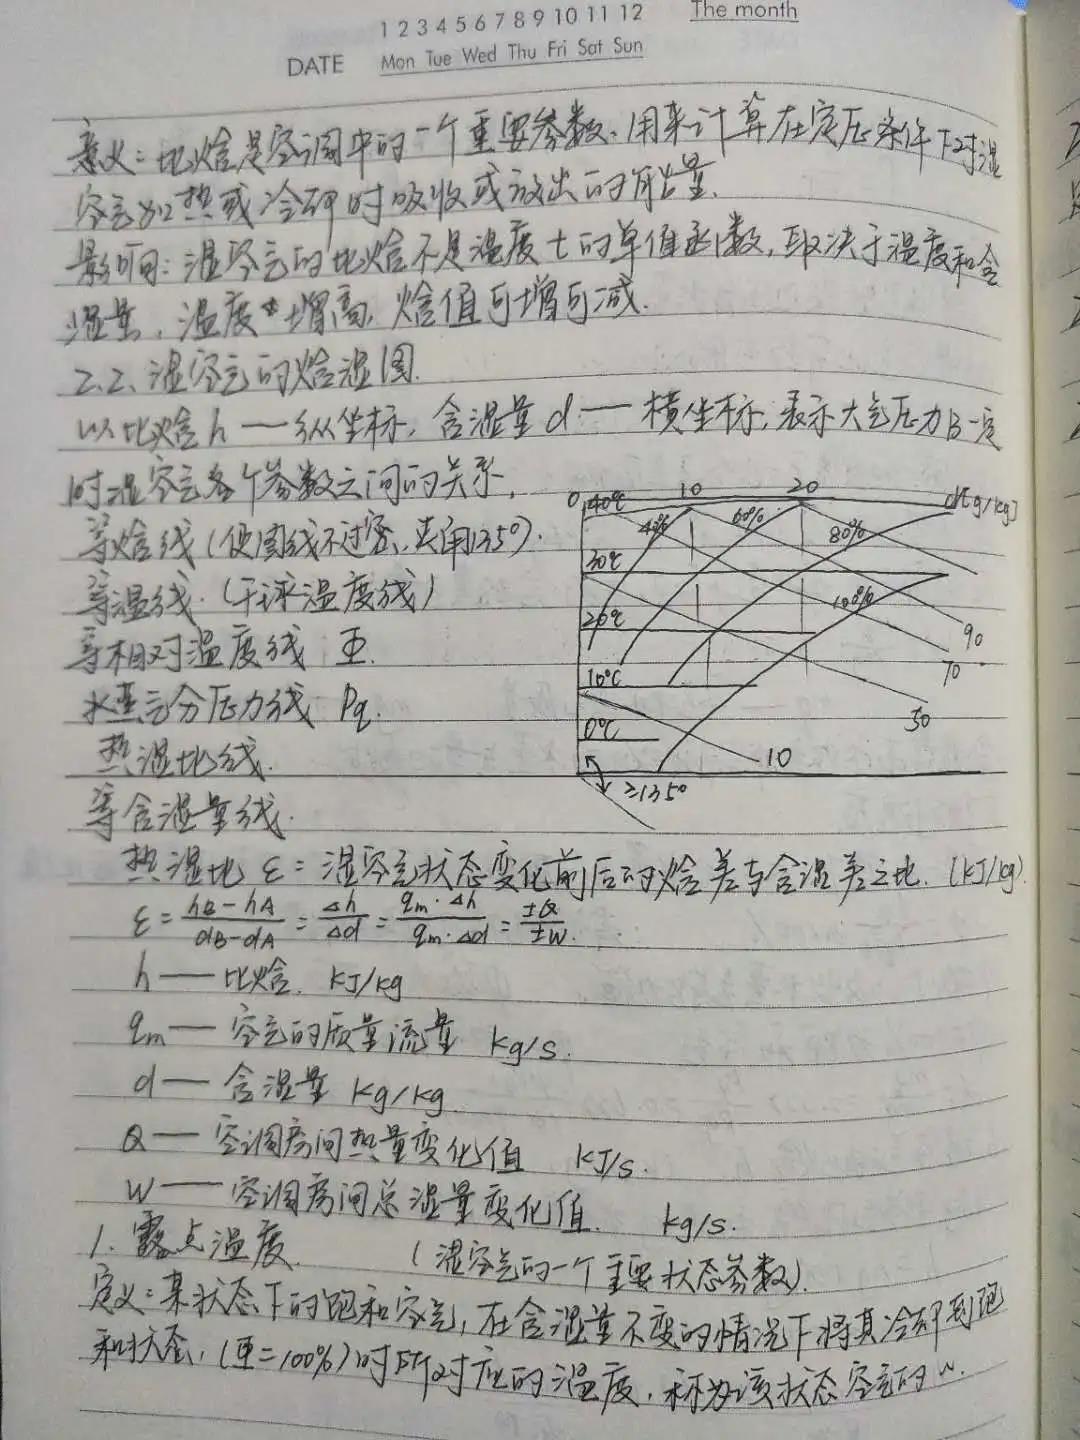 1 2 3 4 5 6 7 8 9 10 11 12 The month
DATE Mon Tue Wed Thu Fri Sat Sun
意义：比焓是空调中的一个重要参数、用来计算在定压条件下对湿
空气加热或冷却时吸收或放出的热量.
影响：湿空气的比焓不是温度t的单值函数，取决于温度和含
湿量，温度增高，焓值可增可减.
2.2、湿空气的焓湿图.
以比焓h—纵坐标，含湿量d—横坐标，表示大气压力B一定
时湿空气各个参数之间的关系，
等焓线（使图线不过密、夹角135°）.
等温线.（干球温度线）
等相对湿度线 Φ.
水蒸气分压力线 Pq.
热湿比线.
等含湿量线.
0 10 20 d[g/kg]
40℃ 40% 60% 80%
30℃
20℃ 100%
90
10℃ 70
50
0℃
10
≥135°
热湿比 ε=湿空气状态变化前后的焓差与含湿差之比.（kJ/kg）.
ε= hB-hA / dB-dA = Δh / Δd = qm·Δh / qm·Δd = ±Q / ±W.
h — 比焓. kJ/kg
qm — 空气的质量流量 kg/s.
d — 含湿量 kg/kg.
Q — 空调房间热量变化值 kJ/s.
W — 空调房间总湿量变化值. kg/s.
1. 露点温度. （湿空气的一个重要状态参数）.
定义：某状态下的饱和空气，在含湿量不变的情况下将其冷却到饱
和状态，（Φ=100%）时所对应的温度，称为该状态空气的~.